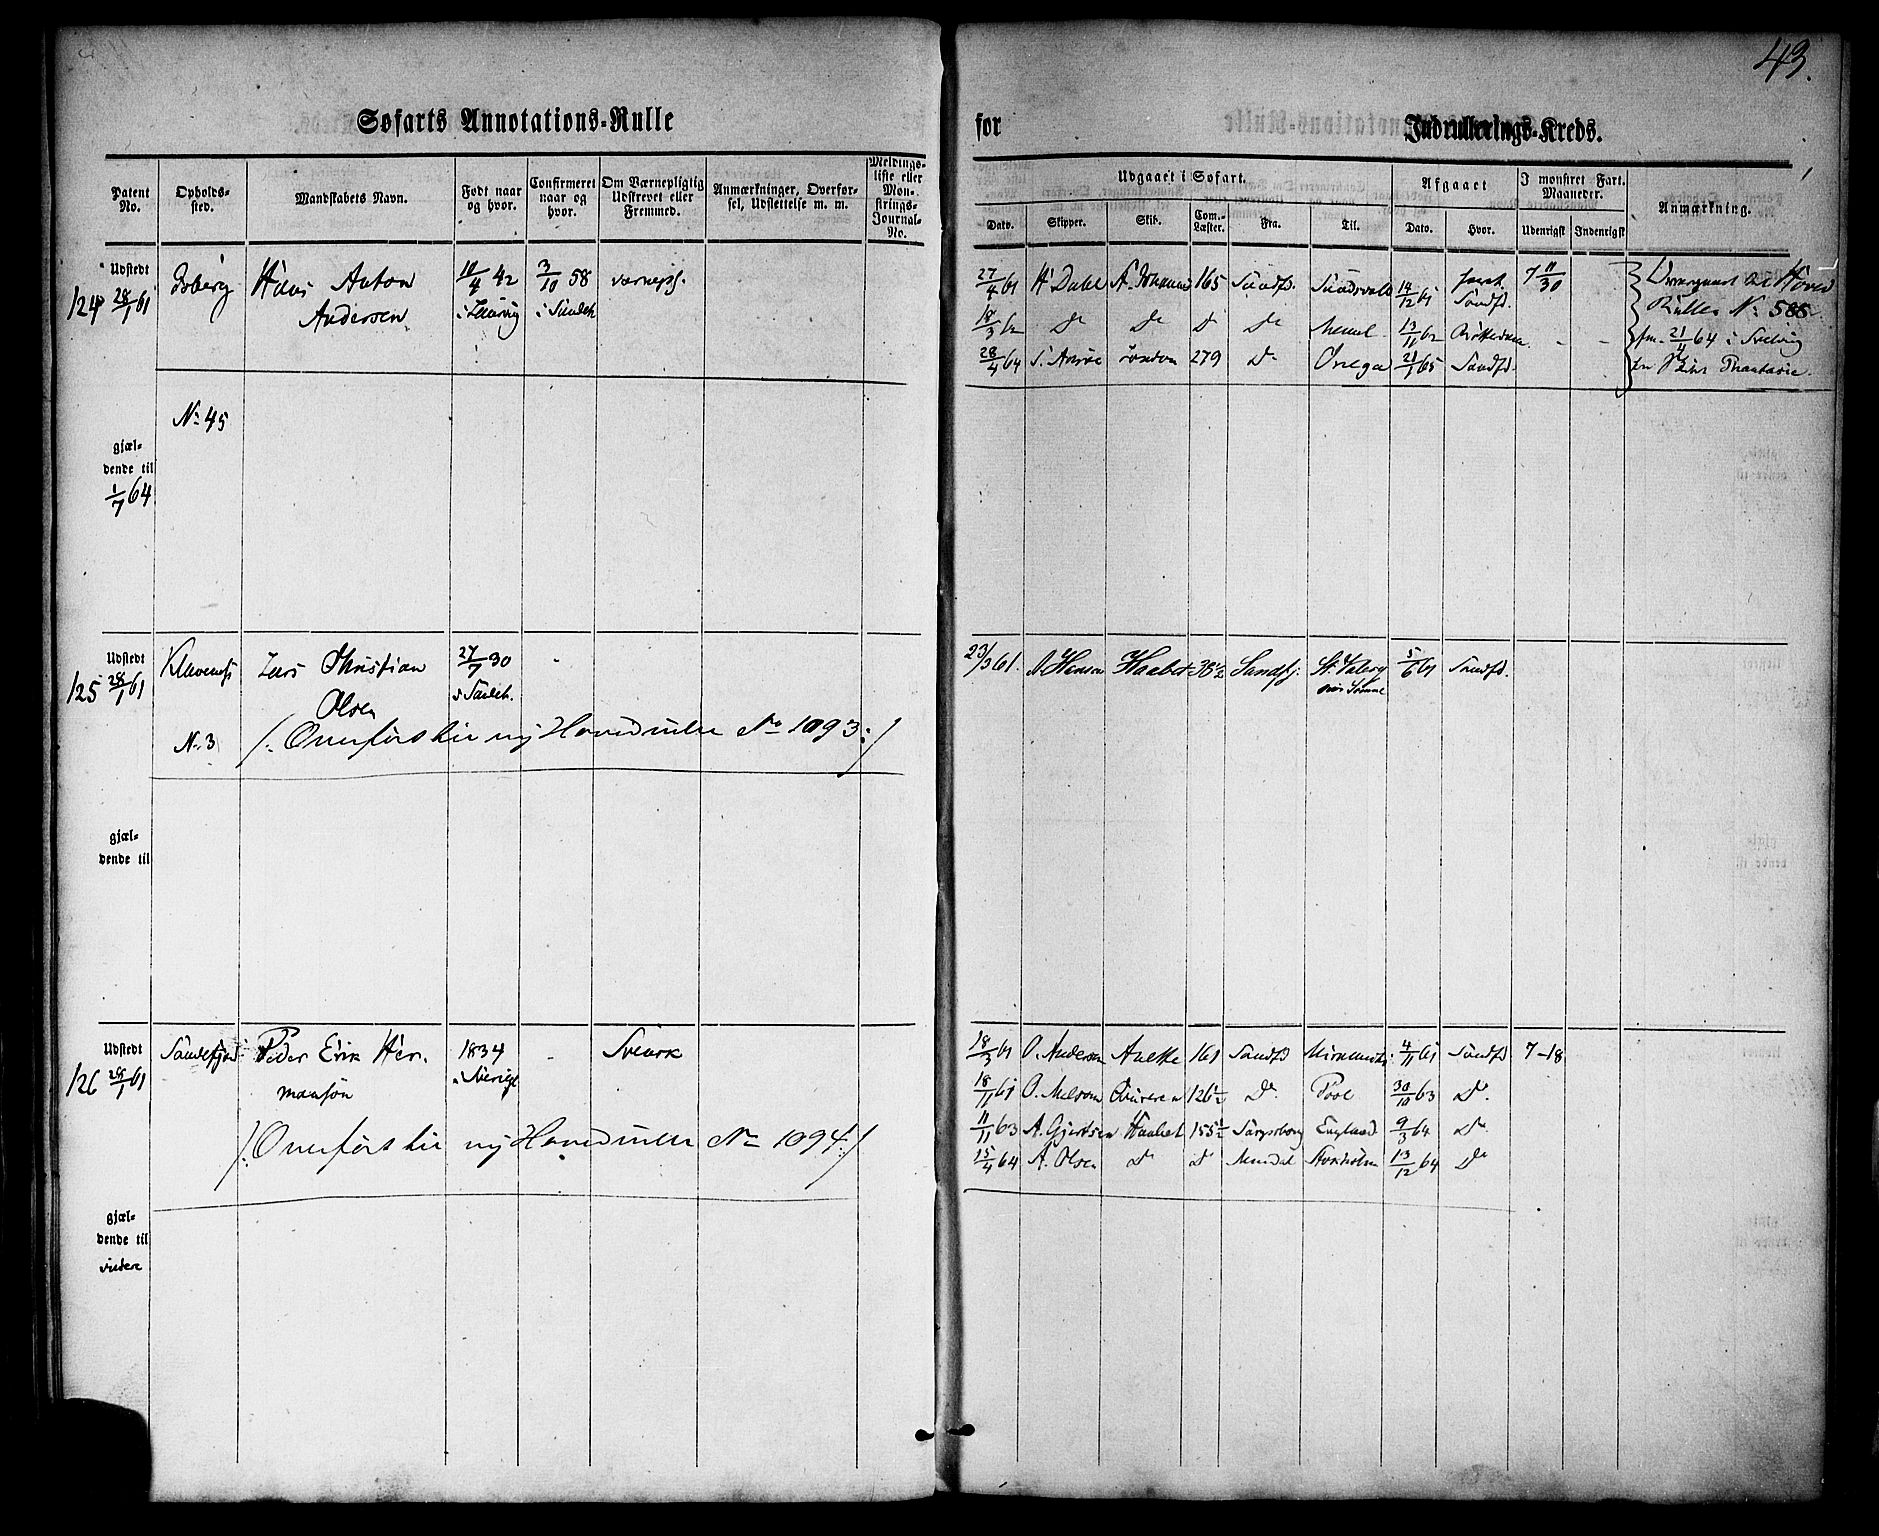 43.
Søfarts Annotations-Rulle for Indrullerings-Kreds.
Patent No.
Opholds-sted.
Mandskabets Navn.
Født naar og hvor.
Confirmeret naar og hvor.
Om Værnepligtig Udskrevet eller Fremmed.
Anmærkninger, Overførsel, Udslettelse m. m.
Meldings-liste eller Mønstrings-Journal-No.
Udgaaet i Søfart.
Dato. Skipper. Skib. Com.-Læster. Fra. Til.
Afgaaet
Dato. Hvor.
I mønstret Fart. Maaneder.
Udenrigst Indenrigst
Anmærkning.
124 Udstedt 28/1 61
Hans Anton
Andersen
10/4 42
3/10 58
værnepl.
27/4 61 H Dahl 165 Sandfd. Sundsvald 14/12 61 Sandfd. 7 11/30
18/3 62 Do Do Do Do Memel 13/11 62
28/4 64 279 Do Onega 21/1 65 Sandfd.
Rullen No 588
fm. 21/4 64 i Svelvig
No 45
gjældende til
1/7 64
125 Udstedt 28/1 61
Lars Christian
Olsen
27/7 30
i Sandeh.
No 3
/: Overført til ny Hovedrulle No 1093 :/
23/3 61. Hansen Haabet 38½ Sandfj. St. Valery 5/6 61 Sandfd.
gjældende til
126 Udstedt 28/1 61
Sandefjord
Peder Erik Her-
mansøn
1834
i Sverige
Svensk
/: Overført til ny Hovedrulle No 1094 :/
18/3 61 O. Andersen Anette 161 Sandfd 4/11 61 Sandfd 7-18
18/11 61 O. Melsom 126½ Do Poole 30/10 63 Do
11/11 63 A. Gjertsen Haabet 155½ Sarpsborg England 9/3 64 Do
15/4 64 A. Olsen Do Do Stockholm 13/12 64 Do
gjældende til
videre